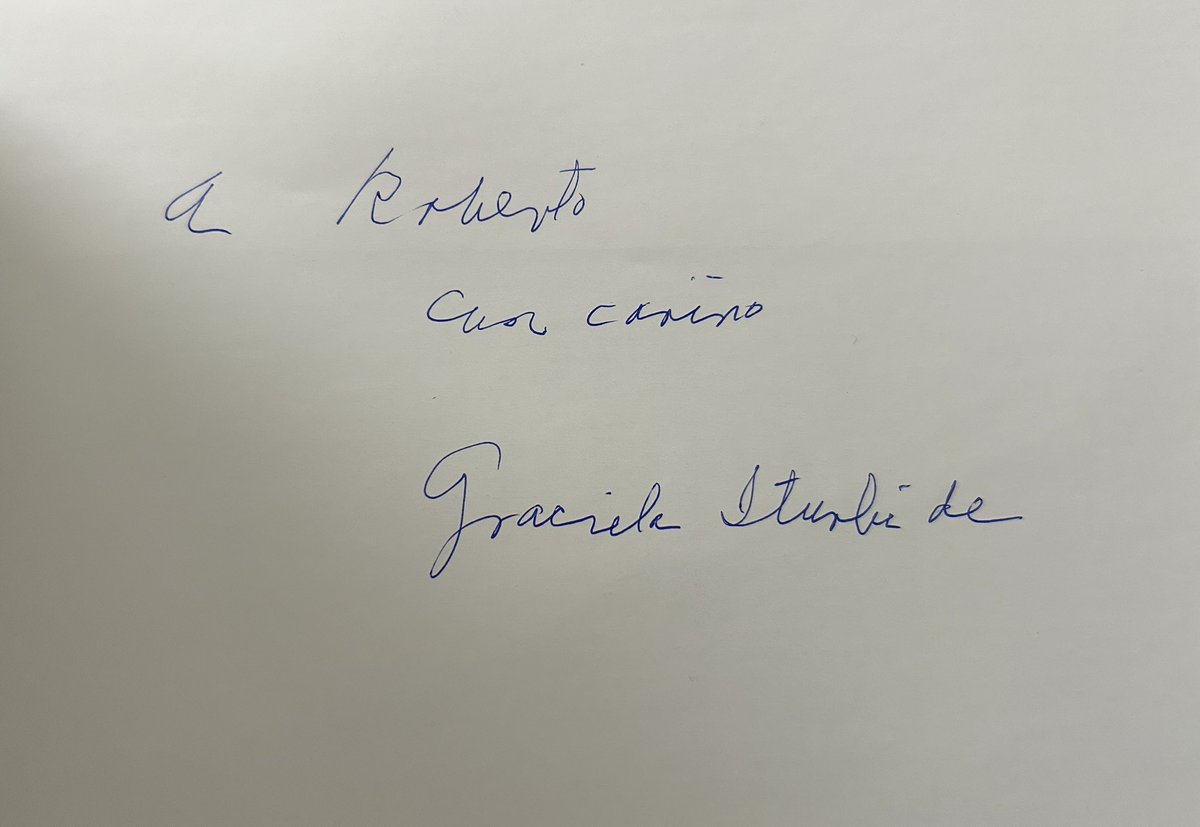 a Roberto
con cariño
Graciela Iturbide